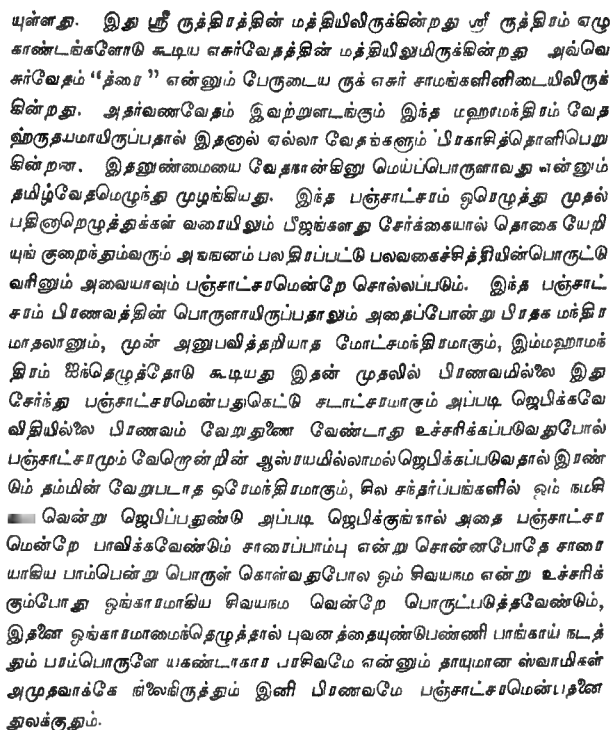 யுள்ளது. இது ஸ்ரீ ருத்திரத்தின் மத்தியிலிருக்கின்றது ஸ்ரீ ருத்திரம் ஏழு
காண்டங்களோடு கூடிய எசுர்வேதத்தின் மத்தியிலுமிருக்கின்றது அவ்வெ
சுர்வேதம் “த்ரை” என்னும் பேருடைய ருக் எசுர் சாமங்களினிடையிலிருக்
கின்றது. அதர்வணவேதம் இவற்றுளடங்கும் இந்த மஹாமந்திரம் வேத
ஹ்ருதயமாயிருப்பதால் இதனால் ஏல்லா வேதங்களும் பிரகாசித்தொளிபெறு
கின்றன. இதனுண்மையை வேதநான்கினு மெய்ப்பொருளாவது என்னும்
தமிழ்வேதமெழுந்து முழங்கியது. இந்த பஞ்சாட்சரம் ஒரெழுத்து முதல்
பதினாறெழுத்துக்கள் வரையிலும் பீஜங்களது சேர்க்கையால் தொகை யேறி
யுங் குறைந்தும்வரும் அங்ஙனம் பலதிரப்பட்டு பலவகைச்சித்தியின்பொருட்டு
வரினும் அவையாவும் பஞ்சாட்சரமென்றே சொல்லப்படும். இந்த பஞ்சாட்
சரம் பிரணவத்தின் பொருளாயிருப்பதாலும் அதைப்போன்று பிரதக மந்திர
மாதலானும், முன் அனுபவித்தறியாத மோட்சமந்திரமாகும், இம்மஹாமந்
திரம் ஐந்தெழுத்தோடு கூடியது இதன் முதலில் பிரணவமில்லை இது
சேர்ந்து பஞ்சாட்சரமென்பதுகெட்டு சடாட்சரமாகும் அப்படி ஜெபிக்கவே
விதியில்லை பிரணவம் வேறுதுணை வேண்டாது உச்சரிக்கப்படுவதுபோல்
பஞ்சாட்சரமும் வேறொன்றின் ஆஸ்ரயமில்லாமல்ஜெபிக்கப்படுவதால் இரண்
டும் தம்மின் வேறுபடாத ஒரேமந்திரமாகும், சில சந்தர்ப்பங்களில் ஒம் நமசி
வென்று ஜெபிப்பதுண்டு அப்படி ஜெபிக்குங்கால் அதை பஞ்சாட்சர
மென்றே பாவிக்கவேண்டும் சாரைப்பாம்பு என்று சொன்னபோதே சாரை
யாகிய பாம்பென்று பொருள் கொள்வதுபோல ஒம் சிவயநம என்று உச்சரிக்
கும்போது ஒங்காரமாகிய சிவயநம வென்றே பொருட்படுத்தவேண்டும்,
இதனை ஒங்காரமாமைந்தெழுத்தால் புவனத்தையுண்டுபண்ணி பாங்காய் நடத்
தும் பரம்பொருளே யகண்டாகார பரசிவமே என்னும் தாயுமான ஸ்வாமிகள்
அமுதவாக்கே நிலைநிருத்தும் இனி பிரணவமே பஞ்சாட்சரமென்பதனை
துலக்குதும்.